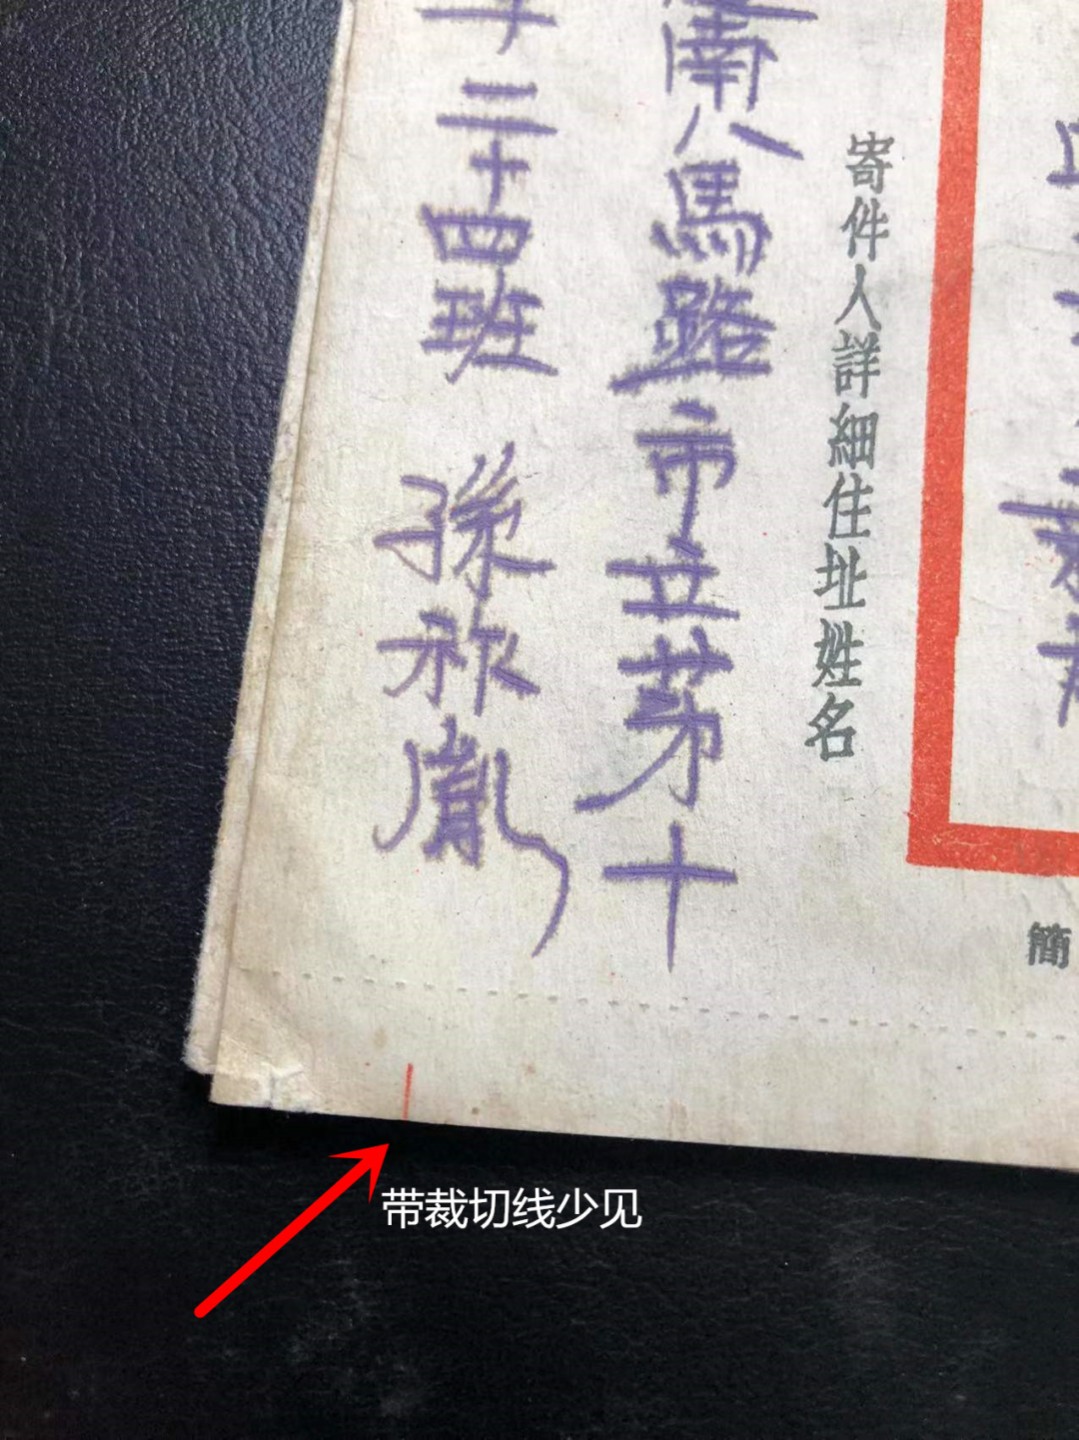 寄件人詳細住址姓名
南八馬路市立苐十
二十四班 孫祚胤
簡
带裁切线少见